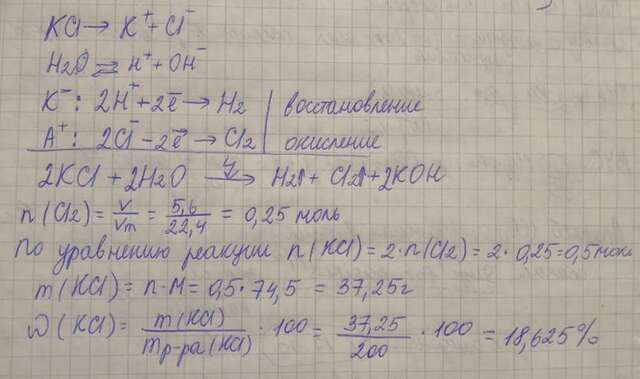 KCl → K⁺ + Cl⁻
H₂O ⇄ H⁺ + OH⁻
K⁻: 2H⁺ + 2ē → H₂ | восстановление
A⁺: 2Cl⁻ − 2ē → Cl₂ | окисление
2KCl + 2H₂O → H₂↑ + Cl₂↑ + 2KOH
n(Cl₂) = V/Vm = 5,6/22,4 = 0,25 моль
По уравнению реакции n(KCl) = 2·n(Cl₂) = 2·0,25 = 0,5 моль
m(KCl) = n·M = 0,5·74,5 = 37,25г
ω(KCl) = m(KCl)/mр-ра(KCl) · 100 = 37,25/200 · 100 = 18,625%